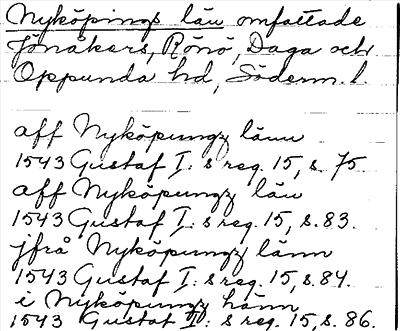 Nyköpings län omfattade
Jönåkers, Rönö, Daga och
Oppunda hd, Söderm. l.
aff Nyköpungz länn
1543 Gustaf I:s reg. 15, s. 75
aff Nyköpungz län
1543 Gustaf I:s reg. 15, s. 83.
jfrå Nyköpungz länn
1543 Gustaf I:s reg. 15, s. 84.
i Nyköpungz hänn
1543 Gustaf I:s reg. 15, s. 86.